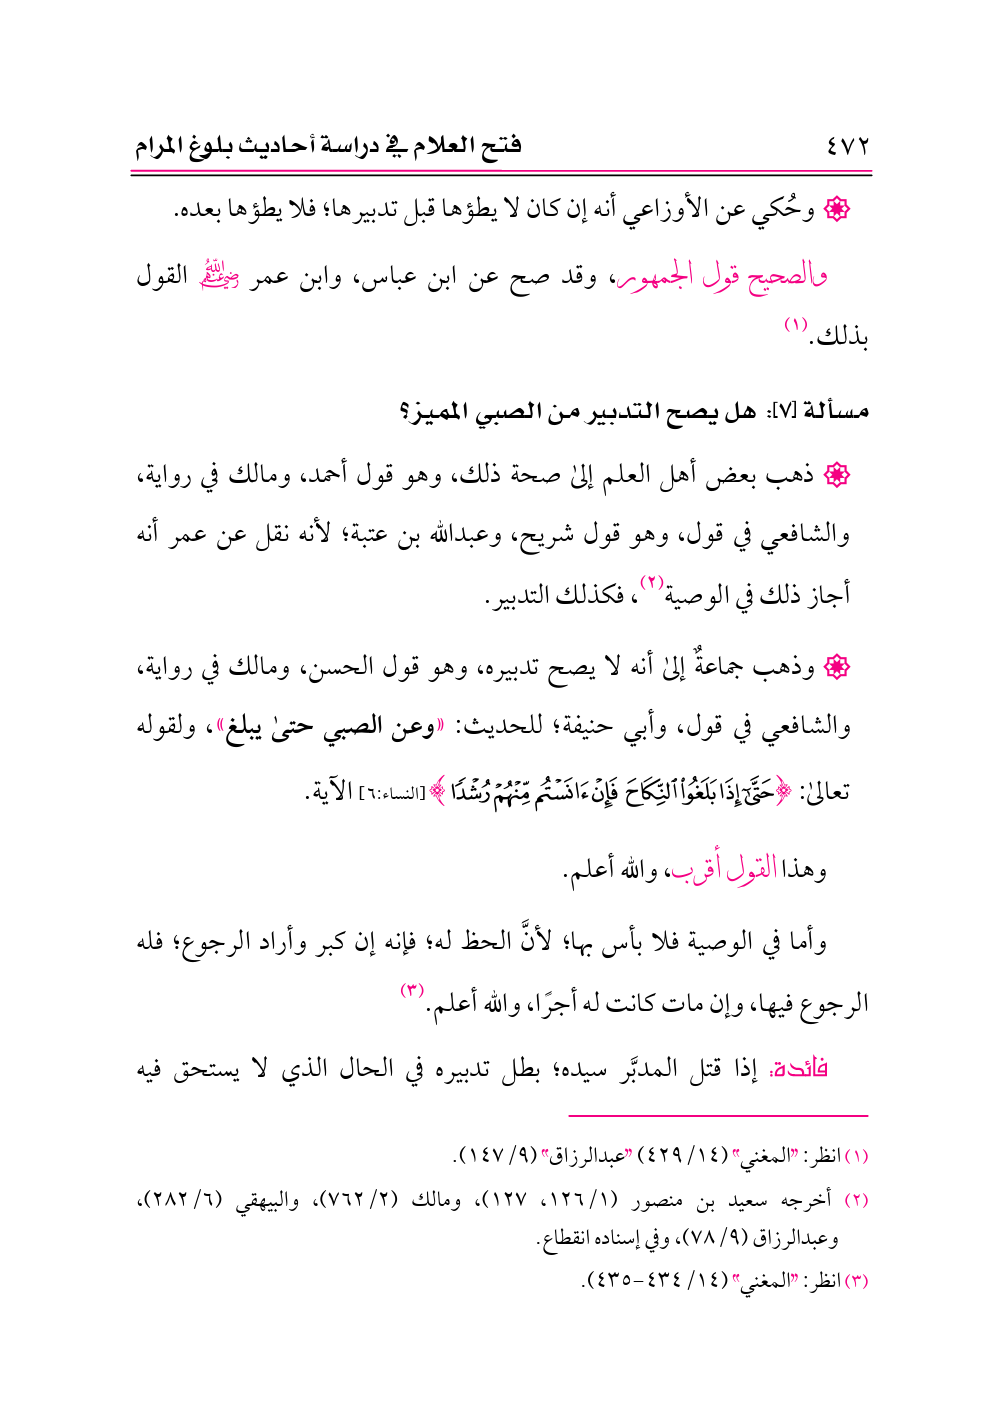 ٤٧٢ فتح العلام في دراسة أحاديث بلوغ المرام
وحُكي عن الأوزاعي أنه إن كان لا يطؤها قبل تدبيرها؛ فلا يطؤها بعده.
والصحيح قول الجمهور، وقد صح عن ابن عباس، وابن عمر رضي الله عنهم القول
بذلك.(١)
مسألة [٧]: هل يصح التدبير من الصبي المميز؟
ذهب بعض أهل العلم إلىٰ صحة ذلك، وهو قول أحمد، ومالك في رواية،
والشافعي في قول، وهو قول شريح، وعبدالله بن عتبة؛ لأنه نقل عن عمر أنه
أجاز ذلك في الوصية(٢)، فكذلك التدبير.
وذهب جماعةٌ إلىٰ أنه لا يصح تدبيره، وهو قول الحسن، ومالك في رواية،
والشافعي في قول، وأبي حنيفة؛ للحديث: «وعن الصبي حتىٰ يبلغ»، ولقوله
تعالىٰ: ﴿حَتَّىٰٓ إِذَا بَلَغُوا۟ ٱلنِّكَاحَ فَإِنْ ءَانَسْتُم مِّنْهُمْ رُشْدًا﴾ [النساء:٦] الآية.
وهذا القول أقرب، والله أعلم.
وأما في الوصية فلا بأس بها؛ لأنَّ الحظ له؛ فإنه إن كبر وأراد الرجوع؛ فله
الرجوع فيها، وإن مات كانت له أجرًا، والله أعلم.(٣)
فائدة: إذا قتل المدبَّر سيده؛ بطل تدبيره في الحال الذي لا يستحق فيه
(١) انظر: "المغني" (١٤/ ٤٢٩) "عبدالرزاق" (٩/ ١٤٧).
(٢) أخرجه سعيد بن منصور (١/ ١٢٦، ١٢٧)، ومالك (٢/ ٧٦٢)، والبيهقي (٦/ ٢٨٢)،
وعبدالرزاق (٩/ ٧٨)، وفي إسناده انقطاع.
(٣) انظر: "المغني" (١٤/ ٤٣٤-٤٣٥).